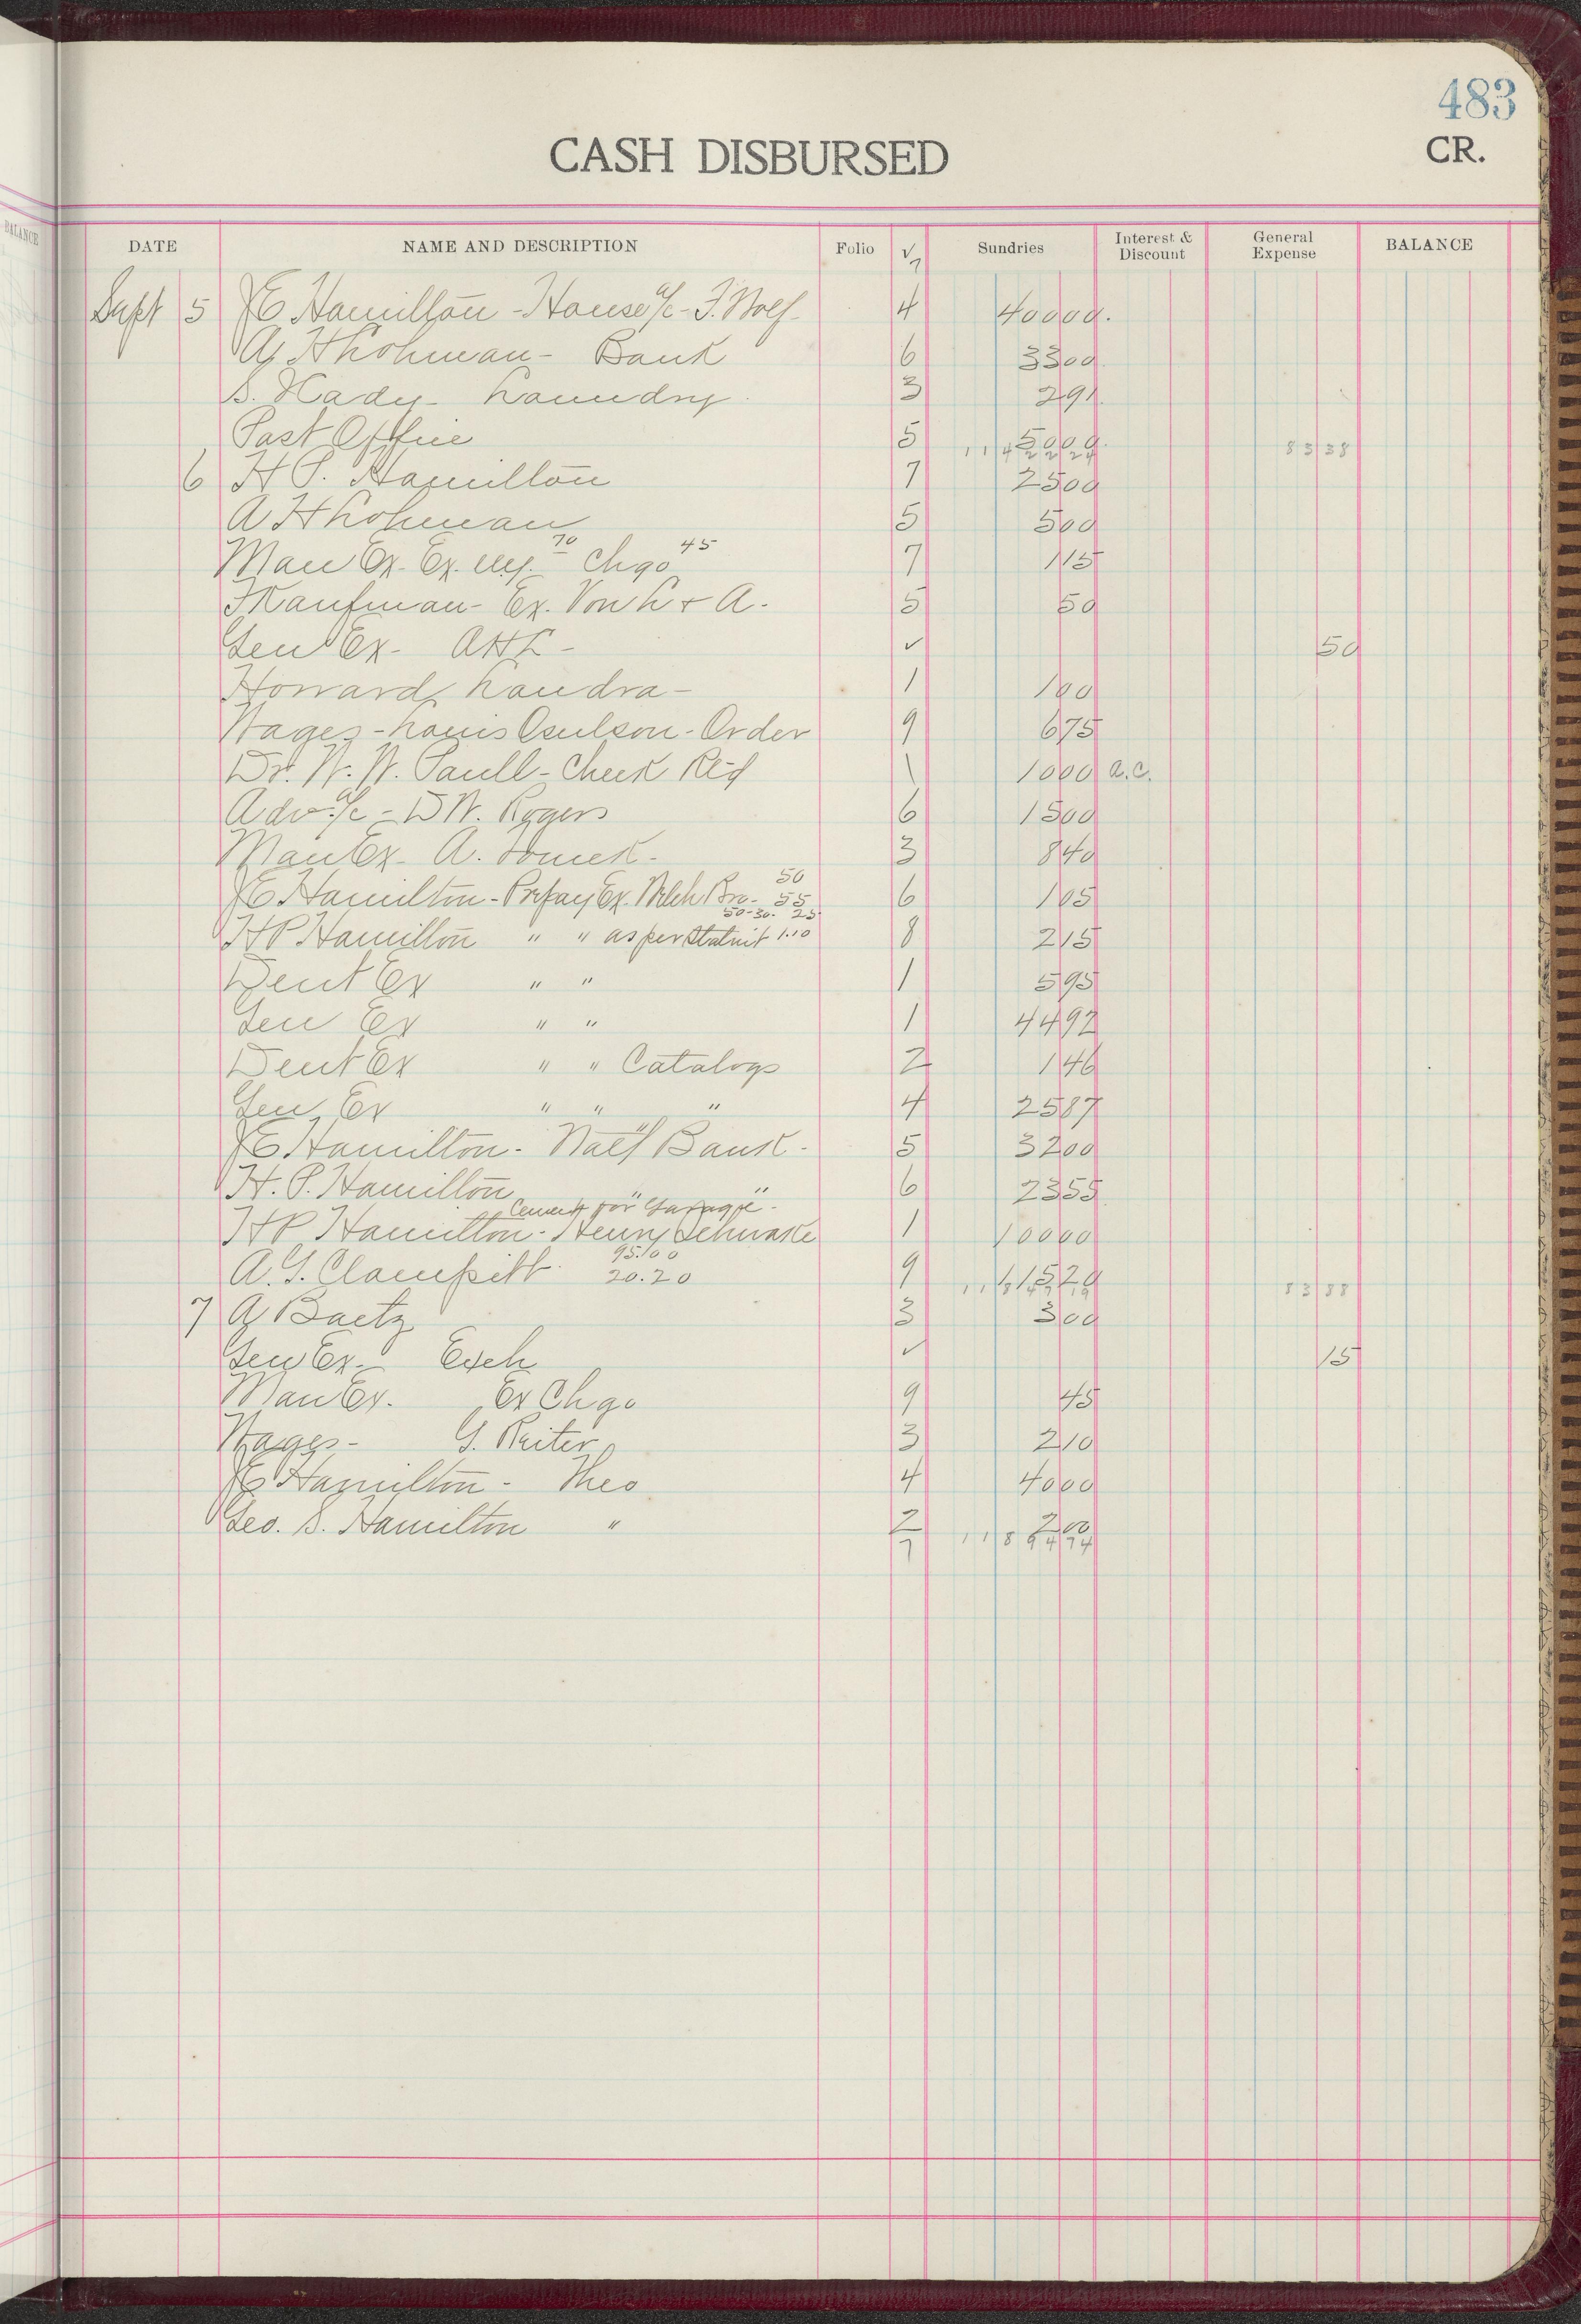 483
CASH DISBURSED CR.
BALANCE
DATE NAME AND DESCRIPTION Folio √ Sundries Interest & Discount General Expense BALANCE
7
Sept 5 J E Hamilton - House a/c - F. Wolf - 4 400 00.
A H Lohman - Bank 6 33 00
S. Kady - Laundry 3 2 91
Post Office 5 50 00.
1 1 4 2 2 2 4 83 38
6 H P. Hamilton 7 25 00
A H Lohman 5 5 00
Man Ex - Ex. 70 Chgo 45 7 1 15
Kaufman - Ex. Von L + A. 5 50
Gen Ex - AHL - ✓ 50
Howard Landra - 1 1 00
Wages - Louis Oeulson - Order 9 6 75
Dr. W. W. Paull - Check Ret'd 1 10 00 a.c.
Adv a/c - D W. Rogers 6 15 00
Man Ex - A. Tomek - 3 8 40
J E Hamilton - Prepay Ex. Welch Bro - 50 55 6 1 05
50-30- 25
H P Hamilton " " as per Statmt 1.10 8 2 15
Dent Ex " " 1 5 95
Gen Ex " " 1 44 92
Dent Ex " " Catalogs 2 1 46
Gen Ex " " " 4 25 87
J E Hamilton - Nat'l Bank - 5 32 00
H. P. Hamilton " " 6 23 55
Cement for Garage -
H P Hamilton - Henry Schwake 1 100 00
95.00
A. G. Clampitt 20.20 9 115 20
83 88
7 A Baetz 3 3 00
Gen Ex - Exch ✓ 15
Man Ex. Ex Chgo 9 45
Wages - G. Reiter 3 2 10
J E Hamilton - Theo 4 40 00
Geo. S. Hamilton " 2 2 00
7 1 1 8 9 4 74